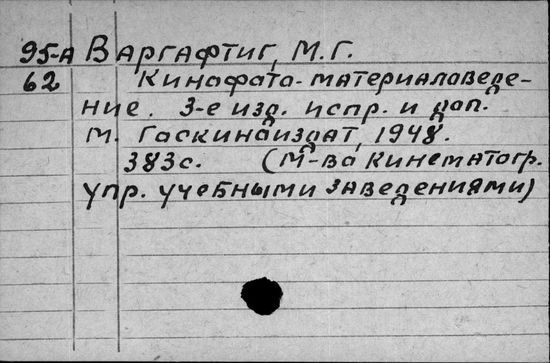 95-А Варгафтиг, М.Г.
62 Кинофото-материаловеде-
ние. 3-е изд. испр. и доп.
М. Госкиноиздат, 1948.
383с. (М-во кинематогр.
упр. учебными заведениями)